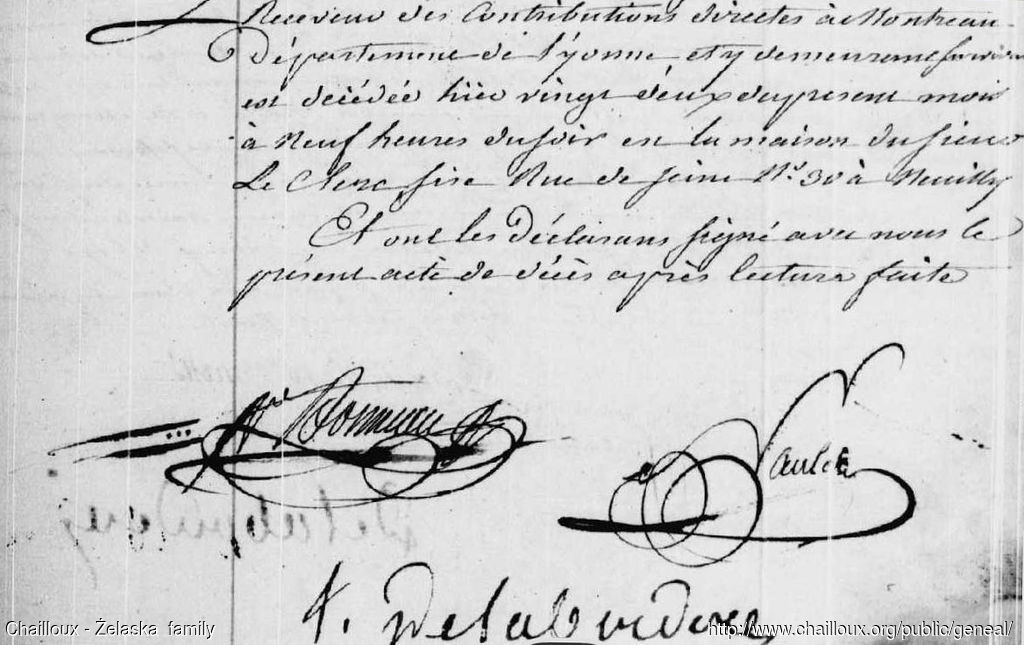 Receveur des Contributions directes à Montreau
Département de l'yonne et y demeurant
est décédée hier vingt deux du present mois
à Neuf heures du soir en la maison du sieur
Le Clerc sise Rue de seine N.º 30 à Neuilly
Et ont les déclarans signé avec nous le
présent acte de décès après lecture faite
Vaulet
Delabordere
Chailloux - Żelaska family
http://www.chailloux.org/public/geneal/